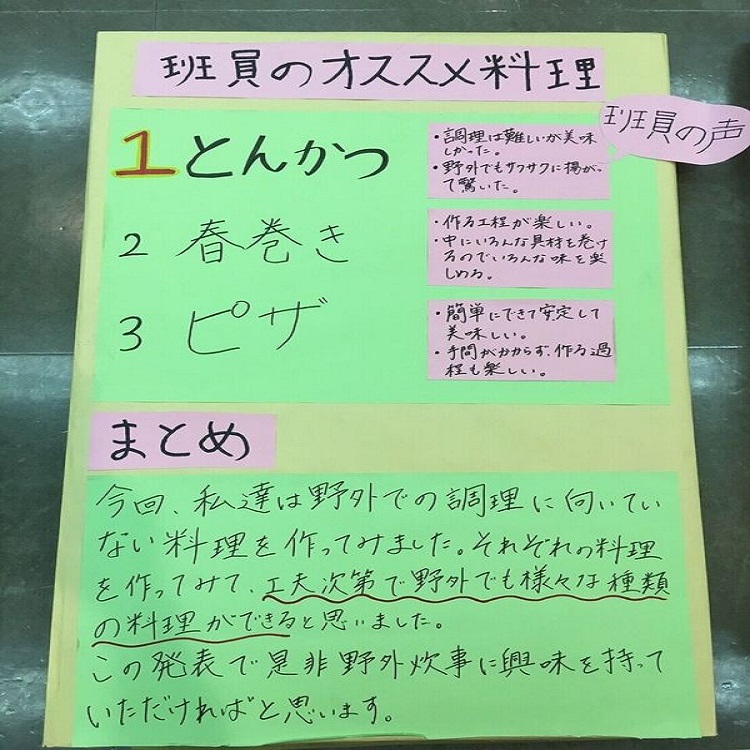 班員のオススメ料理
班員の声
1 とんかつ
・調理は難しいが美味
しかった。
・野外でもサクサクに揚がっ
て驚いた。
2 春巻き
・作る工程が楽しい。
・中にいろんな具材を巻け
るのでいろんな味を楽
しめる。
3 ピザ
・簡単にできて安定して
美味しい。
・手間がかからず、作る過
程も楽しい。
まとめ
今回、私達は野外での調理に向いてい
ない料理を作ってみました。それぞれの料理
を作ってみて、工夫次第で野外でも様々な種類
の料理ができると思いました。
この発表で是非野外炊事に興味を持って
いただければと思います。